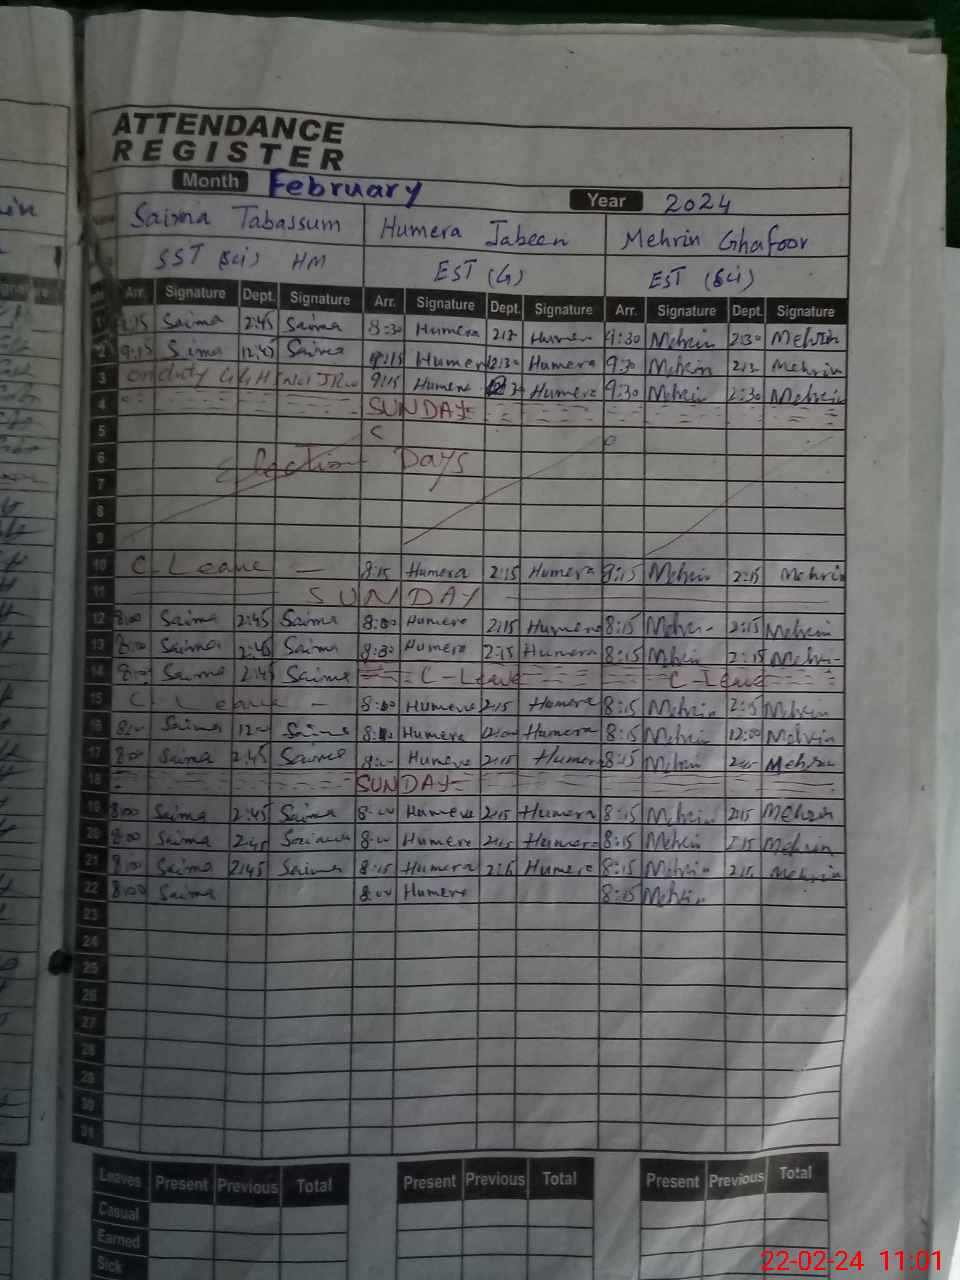 ATTENDANCE
REGISTER
Month February Year 2024
Saima Tabassum Humera Jabeen Mehrin Ghafoor
SST (Sci) HM EST (G) EST (Sci)
Arr. Signature Dept. Signature Arr. Signature Dept. Signature Arr. Signature Dept. Signature
1 9:15 Saima 2:45 Saima 8:30 Humera Humera 9:30 Mehrin 2:30 Mehrin
2 9:15 Saima 12:45 Saima 9:15 Humera 12:30 Humera 9:30 Mehrin Mehrin
3 on duty 9:15 Humera Humera 9:30 Mehrin 2:30 Mehrin
4 SUNDAY
5
6 Election Days
7
8
9
10 C Leave 8:15 Humera 2:15 Humera 8:15 Mehrin 2:15 Mehrin
11 SUNDAY
12 8:00 Saima 2:45 Saima 8:00 Humera 2:15 Humera 8:15 Mehrin 2:15 Mehrin
13 8:00 Saima 2:45 Saima 8:30 Humera 2:15 Humera 8:15 Mehrin 2:15 Mehrin
14 8:00 Saima 2:45 Saima C-Leave C-Leave
15 C Leave 8:00 Humera 2:15 Humera 8:15 Mehrin 2:15 Mehrin
16 8:00 Saima 12:00 Saima Humera 12:00 Humera 8:15 Mehrin 12:00 Mehrin
17 8:00 Saima 2:45 Saima 8:00 Humera 2:15 Humera 8:15 Mehrin 2:15 Mehrin
18 SUNDAY
19 8:00 Saima 2:45 Saima 8:00 Humera 2:15 Humera 8:15 Mehrin 2:15 Mehrin
20 8:00 Saima 2:45 Saima 8:00 Humera 2:15 Humera 8:15 Mehrin 2:15 Mehrin
21 8:00 Saima 2:45 Saima 8:15 Humera 2:15 Humera 8:15 Mehrin 2:15 Mehrin
22 8:00 Saima 8:00 Humera 8:15 Mehrin
23
24
25
26
27
28
29
30
31
Leaves Present Previous Total Present Previous Total Present Previous Total
Casual
Earned
Sick
22-02-24 11:01